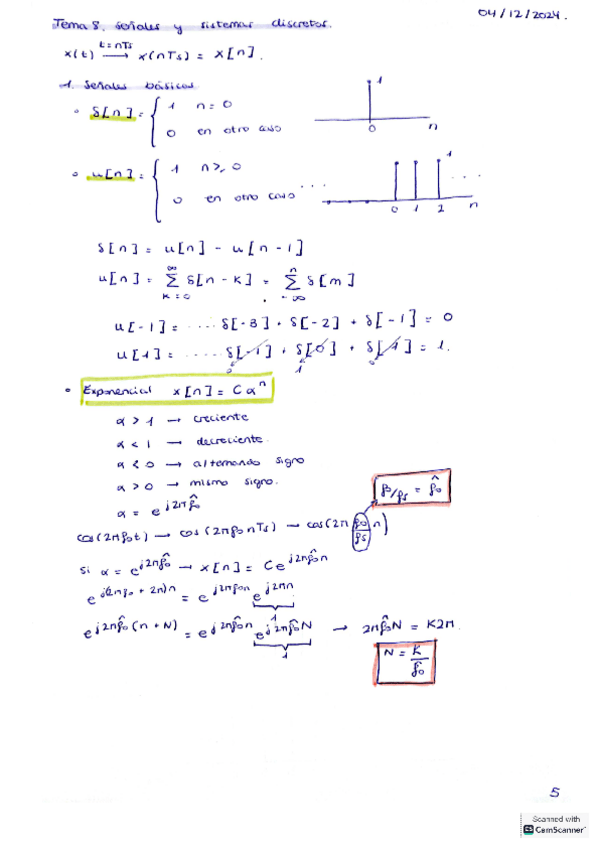 04/12/2024.
Tema 5. Señales y sistemas discretos.
x(t) —t=nTs→ x(nTs) = x[n].
1. Señales básicas
• δ[n] = { 1 n=0
0 en otro caso
1
0 n
• u[n] = { 1 n≥0
0 en otro caso
... 1 ...
0 1 2 n
δ[n] = u[n] - u[n-1]
u[n] = ∑_{k=0}^{∞} δ[n-k] = ∑_{-∞}^{n} δ[m]
u[-1] = ..... δ[-3] + δ[-2] + δ[-1] = 0
u[1] = ..... δ[-1] + δ[0] + δ[1] = 1.
0 1 0
• Exponencial x[n] = C αⁿ
α > 1 → creciente
α < 1 → decreciente.
α < 0 → alternando signo
α > 0 → mismo signo.
α = e^{j2πf̂₀}
f₀/fs = f̂₀
cos(2πf₀t) → cos(2πf₀nTs) → cos(2π f₀/fs n)
si α = e^{j2πf̂₀} → x[n] = C e^{j2πf̂₀n}
e^{j(2πf₀ + 2π)n} = e^{j2πf₀n} e^{j2πn}
1
e^{j2πf̂₀(n+N)} = e^{j2πf̂₀n} e^{j2πf̂₀N} → 2πf̂₀N = K2π.
1
N = K/f̂₀
5
Scanned with
CamScanner